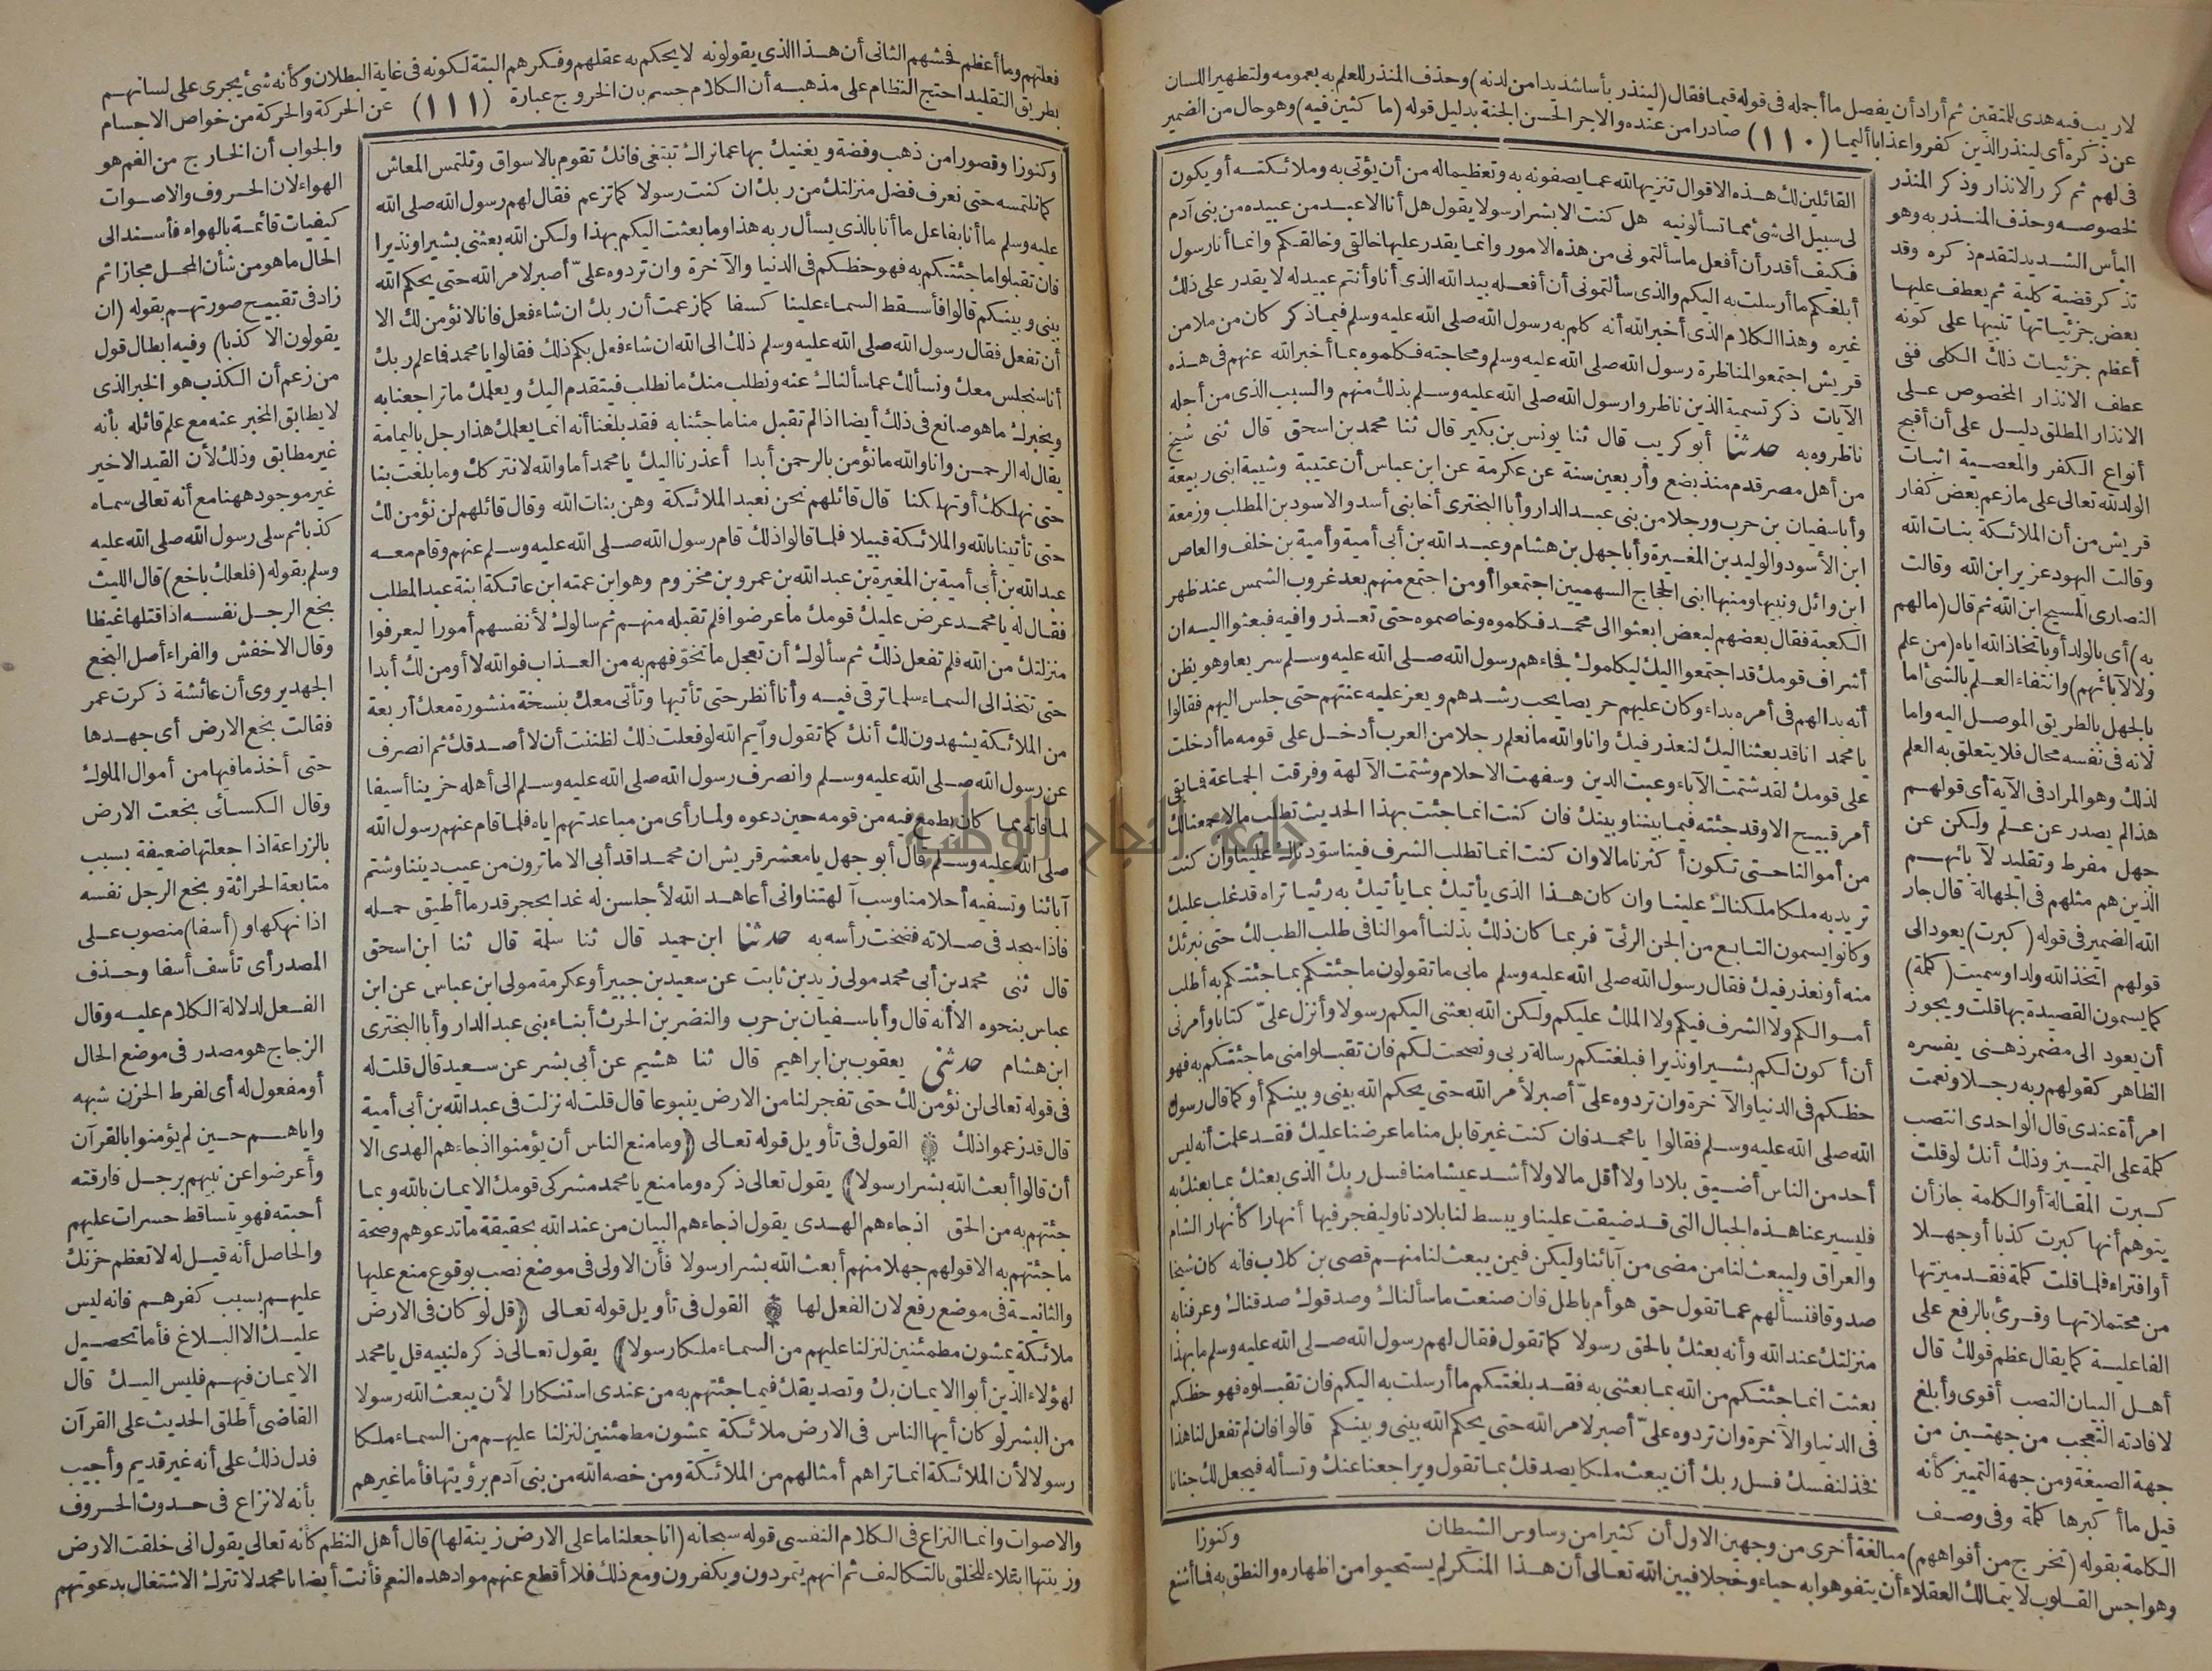 لاريب فيه هدى للمتقين ثم أراد أن يفصل ما أجمله فى قوله قيما فقال (لينذر بأسا شديدا من لدنه) وحذف المنذر للعلم به بعمومه ولتطهير اللسان
عن ذكره أى لينذر الذين كفروا عذابا أليما (١١٠) صادرا من عنده والاجر الحسن الجنة بدليل قوله (ماكثين فيه) وهو حال من الضمير
فى لهم ثم كرر الانذار وذكر المنذر
لخصوصه وحذف المنذر به وهو
البأس الشديد لتقدم ذكره وقد
تذكر قضية كلية ثم يعطف عليها
بعض جزئياتها تنبيها على كونه
أعظم جزئيات ذلك الكلى ففى
عطف الانذار المخصوص على
الانذار المطلق دليل على أن أقبح
أنواع الكفر والمعصية اثبات
الولد لله تعالى على ما زعم بعض كفار
قريش من أن الملائكة بنات الله
وقالت اليهود عزير ابن الله وقالت
النصارى المسيح ابن الله ثم قال (مالهم
به) أى بالولد أو باتخاذ الله اياه (من علم
ولا لآبائهم) وانتفاء العلم بالشئ اما
بالجهل بالطريق الموصل اليه واما
لانه فى نفسه محال فلا يتعلق به العلم
لذلك وهو المراد فى الآية أى قولهم
هذا لم يصدر عن علم ولكن عن
جهل مفرط وتقليد لآبائهم
الذين هم مثلهم فى الجهالة قال جار
الله الضمير فى قوله (كبرت) يعود الى
قولهم اتخذ الله ولدا وسميت (كلمة)
كما يسمون القصيدة بها قلت ويجوز
أن يعود الى مضمر ذهنى يفسره
الظاهر كقولهم ربه رجلا ونعمت
امرأة عندى قال الواحدى انتصب
كلمة على التمييز وذلك أنك لو قلت
كبرت المقالة أو الكلمة جاز أن
يتوهم أنها كبرت كذبا أو جهلا
أو افتراء فلما قلت كلمة فقد ميزتها
من محتملاتها وقرئ بالرفع على
الفاعلية كما يقال عظم قولك قال
أهل البيان النصب أقوى وأبلغ
لافادته التعجب من جهتين من
جهة الصيغة ومن جهة التمييز كأنه
قيل ما أكبرها كلمة وفى وصف
القائلين لك هذه الاقوال تنزيها لله عما يصفونه به وتعظيما له من أن يؤتى به وملائكته أو يكون
لى سبيل الى شئ مما تسألونيه هل كنت الا بشرا رسولا يقول هل أنا الا عبد من عبيده من بنى آدم
فكيف أقدر أن أفعل ما سألتمونى من هذه الامور وانما يقدر عليها خالقى وخالقكم وانما أنا رسول
أبلغكم ما أرسلت به اليكم والذى سألتمونى أن أفعله بيد الله الذى أنا وأنتم عبيد له لا يقدر على ذلك
غيره وهذا الكلام الذى أخبر الله أنه كلم به رسول الله صلى الله عليه وسلم فيما ذكر كان من ملا من
قريش اجتمعوا لمناظرة رسول الله صلى الله عليه وسلم ومحاجته فكلموه بما أخبر الله عنهم فى هذه
الآيات ذكر تسمية الذين ناظروا رسول الله صلى الله عليه وسلم بذلك منهم والسبب الذى من أجله
ناظروه به حدثنا أبو كريب قال ثنا يونس بن بكير قال ثنا محمد بن اسحق قال ثنى شيخ
من أهل مصر قدم منذ بضع وأربعين سنة عن عكرمة عن ابن عباس أن عتيبة وشيبة ابنى ربيعة
وأبا سفيان بن حرب ورجلا من بنى عبد الدار وأبا البخترى أخا بنى أسد والاسود بن المطلب وزمعة
ابن الأسود والوليد بن المغيرة وأبا جهل بن هشام وعبد الله بن أبى أمية وأمية بن خلف والعاص
ابن وائل ونبيها ومنبها ابنى الحجاج السهميين اجتمعوا أو من اجتمع منهم بعد غروب الشمس عند ظهر
الكعبة فقال بعضهم لبعض ابعثوا الى محمد فكلموه وخاصموه حتى تعذروا فيه فبعثوا اليه ان
أشراف قومك قد اجتمعوا اليك ليكلموك فجاءهم رسول الله صلى الله عليه وسلم سريعا وهو يظن
أنه بدا لهم فى أمره بداء وكان عليهم حريصا يحب رشدهم ويعز عليه عنتهم حتى جلس اليهم فقالوا
يا محمد انا قد بعثنا اليك لنعذر فيك وانا والله ما نعلم رجلا من العرب أدخل على قومه ما أدخلت
على قومك لقد شتمت الآباء وعبت الدين وسفهت الاحلام وشتمت الآلهة وفرقت الجماعة فما بقى
أمر قبيح الا وقد جئته فيما بيننا وبينك فان كنت انما جئت بهذا الحديث تطلب مالا جمعنا لك
من أموالنا حتى تكون أكثرنا مالا وان كنت انما تطلب الشرف فينا سودناك علينا وان كنت
تريد به ملكا ملكناك علينا وان كان هذا الذى يأتيك بما يأتيك به رئيا تراه قد غلب عليك
وكانوا يسمون التابع من الجن الرئى فربما كان ذلك بذلنا أموالنا فى طلب الطب لك حتى نبرئك
منه أو نعذر فيك فقال رسول الله صلى الله عليه وسلم مابى ما تقولون ما جئتكم بما جئتكم به أطلب
أموالكم ولا الشرف فيكم ولا الملك عليكم ولكن الله بعثنى اليكم رسولا وأنزل على كتابا وأمرنى
أن أكون لكم بشيرا ونذيرا فبلغتكم رسالة ربى ونصحت لكم فان تقبلوا منى ما جئتكم به فهو
حظكم فى الدنيا والآخرة وان تردوه على أصبر لأمر الله حتى يحكم الله بينى وبينكم أو كما قال رسول
الله صلى الله عليه وسلم فقالوا يا محمد فان كنت غير قابل منا ما عرضنا عليك فقد علمت أنه ليس
أحد من الناس أضيق بلادا ولا أقل مالا ولا أشد عيشا منا فسل ربك الذى بعثك بما بعثك به
فليسير عنا هذه الجبال التى قد ضيقت علينا ويبسط لنا بلادنا وليفجر فيها أنهارا كأنهار الشام
والعراق وليبعث لنا من مضى من آبائنا وليكن فيمن يبعث لنا منهم قصى بن كلاب فانه كان شيخا
صدوقا فنسألهم عما تقول حق هو أم باطل فان صنعت ما سألناك وصدقوك صدقناك وعرفنا به
منزلتك عند الله وأنه بعثك بالحق رسولا كما تقول فقال لهم رسول الله صلى الله عليه وسلم ما بهذا
بعثت انما جئتكم من الله بما بعثنى به فقد بلغتكم ما أرسلت به اليكم فان تقبلوه فهو حظكم
فى الدنيا والآخرة وان تردوه على أصبر لامر الله حتى يحكم الله بينى وبينكم قالوا فان لم تفعل لنا هذا
فخذ لنفسك فسل ربك أن يبعث ملكا يصدقك بما تقول ويراجعنا عنك وتسأله فيجعل لك جنانا
وكنوزا
الكلمة بقوله (تخرج من أفواههم) مبالغة أخرى من وجهين الاول أن كثيرا من وساوس الشيطان
وهواجس القلوب لا يتمالك العقلاء أن يتفوهوا به حياء وخجلا فبين الله تعالى أن هذا المنكر لم يستحيوا من اظهاره والنطق به فما أشنع
فعلتهم وما أعظم فحشهم الثانى أن هذا الذى يقولونه لا يحكم به عقلهم وفكرهم البتة لكونه فى غاية البطلان وكأنه شئ يجرى على لسانهم
بطريق التقليد احتج النظام على مذهبه أن الكلام جسم بان الخروج عبارة (١١١) عن الحركة والحركة من خواص الاجسام
وكنوزا وقصورا من ذهب وفضة ويغنيك بها عما نراك تبتغى فانك تقوم بالاسواق وتلتمس المعاش
كما نلتمسه حتى نعرف فضل منزلتك من ربك ان كنت رسولا كما تزعم فقال لهم رسول الله صلى الله
عليه وسلم ما أنا بفاعل ما أنا بالذى يسأل ربه هذا وما بعثت اليكم بهذا ولكن الله بعثنى بشيرا ونذيرا
فان تقبلوا ما جئتكم به فهو حظكم فى الدنيا والآخرة وان تردوه على أصبر لامر الله حتى يحكم الله
بينى وبينكم قالوا فأسقط السماء علينا كسفا كما زعمت أن ربك ان شاء فعل فانا لا نؤمن لك الا
أن تفعل فقال رسول الله صلى الله عليه وسلم ذلك الى الله ان شاء فعل بكم ذلك فقالوا يا محمد فاعلم ربك
أنا سنجلس معك ونسألك عما سألناك عنه ونطلب منك ما نطلب فيتقدم اليك ويعلمك ما تراجعنا به
ويخبرك ما هو صانع فى ذلك أيضا اذا لم تقبل منا ما جئتنا به فقد بلغنا أنه انما يعلمك هذا رجل باليمامة
يقال له الرحمن وانا والله ما نؤمن بالرحمن أبدا أعذرنا اليك يا محمد أما والله لا نتركك وما بلغت بنا
حتى نهلكك أو تهلكنا قال قائلهم نحن نعبد الملائكة وهن بنات الله وقال قائلهم لن نؤمن لك
حتى تأتينا بالله والملائكة قبيلا فلما قالوا ذلك قام رسول الله صلى الله عليه وسلم عنهم وقام معه
عبد الله بن أبى أمية بن المغيرة بن عبد الله بن عمرو بن مخزوم وهو ابن عمته ابن عاتكة ابنة عبد المطلب
فقال له يا محمد عرض عليك قومك ما عرضوا فلم تقبله منهم ثم سالوك لأنفسهم أمورا ليعرفوا
منزلتك من الله فلم تفعل ذلك ثم سألوك أن تعجل ما تخوفهم به من العذاب فوالله لا أومن لك أبدا
حتى تتخذ الى السماء سلما ترقى فيه وأنا أنظر حتى تأتيها وتأتى معك بنسخة منشورة معك أربعة
من الملائكة يشهدون لك أنك كما تقول وأيم الله لو فعلت ذلك لظننت أن لا أصدقك ثم انصرف
عن رسول الله صلى الله عليه وسلم وانصرف رسول الله صلى الله عليه وسلم الى أهله حزينا أسيفا
لما فاته مما كان يطمع فيه من قومه حين دعوه ولما رأى من مباعدتهم اياه فلما قام عنهم رسول الله
صلى الله عليه وسلم قال أبو جهل يا معشر قريش ان محمدا قد أبى الا ما ترون من عيب ديننا وشتم
آبائنا وتسفيه أحلامنا وسب آلهتنا وانى أعاهد الله لأجلسن له غدا بحجر قدر ما أطيق حمله
فاذا سجد فى صلاته فضخت رأسه به حدثنا ابن حميد قال ثنا سلمة قال ثنا ابن اسحق
قال ثنى محمد بن أبى محمد مولى زيد بن ثابت عن سعيد بن جبير أو عكرمة مولى ابن عباس عن ابن
عباس بنحوه الا أنه قال وأبا سفيان بن حرب والنضر بن الحرث أبناء بنى عبد الدار وأبا البخترى
ابن هشام حدثنى يعقوب بن ابراهيم قال ثنا هشيم عن أبى بشر عن سعيد قال قلت له
فى قوله تعالى لن نؤمن لك حتى تفجر لنا من الارض ينبوعا قال قلت له نزلت فى عبد الله بن أبى أمية
قال قد زعموا ذلك ۞ القول فى تأويل قوله تعالى ﴿وما منع الناس أن يؤمنوا اذ جاءهم الهدى الا
أن قالوا أبعث الله بشرا رسولا﴾ يقول تعالى ذكره وما منع يا محمد مشركى قومك الايمان بالله وبما
جئتهم به من الحق اذ جاءهم الهدى يقول اذ جاءهم البيان من عند الله بحقيقة ما تدعوهم وصحة
ما جئتهم به الا قولهم جهلا منهم أبعث الله بشرا رسولا فأن الاولى فى موضع نصب بوقوع منع عليها
والثانية فى موضع رفع لان الفعل لها ۞ القول فى تأويل قوله تعالى ﴿قل لو كان فى الارض
ملائكة يمشون مطمئنين لنزلنا عليهم من السماء ملكا رسولا﴾ يقول تعالى ذكره لنبيه قل يا محمد
لهؤلاء الذين أبوا الايمان بك وتصديقك فيما جئتهم به من عندى استنكارا لأن يبعث الله رسولا
من البشر لو كان أيها الناس فى الارض ملائكة يمشون مطمئنين لنزلنا عليهم من السماء ملكا
رسولا لأن الملائكة انما تراهم أمثالهم من الملائكة ومن خصه الله من بنى آدم برؤيتها فأما غيرهم
والجواب أن الخارج من الفم هو
الهواء لان الحروف والاصوات
كيفيات قائمة بالهواء فأسند الى
الحال ما هو من شأن المحل مجازا ثم
زاد فى تقبيح صورتهم بقوله (ان
يقولون الا كذبا) وفيه ابطال قول
من زعم أن الكذب هو الخبر الذى
لا يطابق المخبر عنه مع علم قائله بأنه
غير مطابق وذلك لأن القيد الاخير
غير موجود ههنا مع أنه تعالى سماه
كذبا ثم سلى رسول الله صلى الله عليه
وسلم بقوله (فلعلك باخع) قال الليث
بخع الرجل نفسه اذا قتلها غيظا
وقال الاخفش والفراء أصل البخع
الجهد يروى أن عائشة ذكرت عمر
فقالت بخع الارض أى جهدها
حتى أخذ ما فيها من أموال الملوك
وقال الكسائى بخعت الارض
بالزراعة اذا جعلتها ضعيفة بسبب
متابعة الحراثة وبخع الرجل نفسه
اذا نهكها و(أسفا) منصوب على
المصدر أى تأسف أسفا وحذف
الفعل لدلالة الكلام عليه وقال
الزجاج هو مصدر فى موضع الحال
أو مفعول له أى لفرط الحزن شبهه
واياهم حين لم يؤمنوا بالقرآن
وأعرضوا عن نبيهم برجل فارقته
أحبته فهو يتساقط حسرات عليهم
والحاصل أنه قيل له لا تعظم حزنك
عليهم بسبب كفرهم فانه ليس
عليك الا البلاغ فأما تحصيل
الايمان فيهم فليس اليك قال
القاضى أطلق الحديث على القرآن
فدل ذلك على أنه غير قديم وأجيب
بأنه لا نزاع فى حدوث الحروف
والاصوات وانما النزاع فى الكلام النفسى قوله سبحانه (انا جعلنا ما على الارض زينة لها) قال أهل النظم كأنه تعالى يقول انى خلقت الارض
وزينتها ابتلاء للخلق بالتكاليف ثم انهم يتمردون ويكفرون ومع ذلك فلا أقطع عنهم مواد هذه النعم فأنت أيضا يا محمد لا تترك الاشتغال بدعوتهم
جامعة النجاح الوطنية